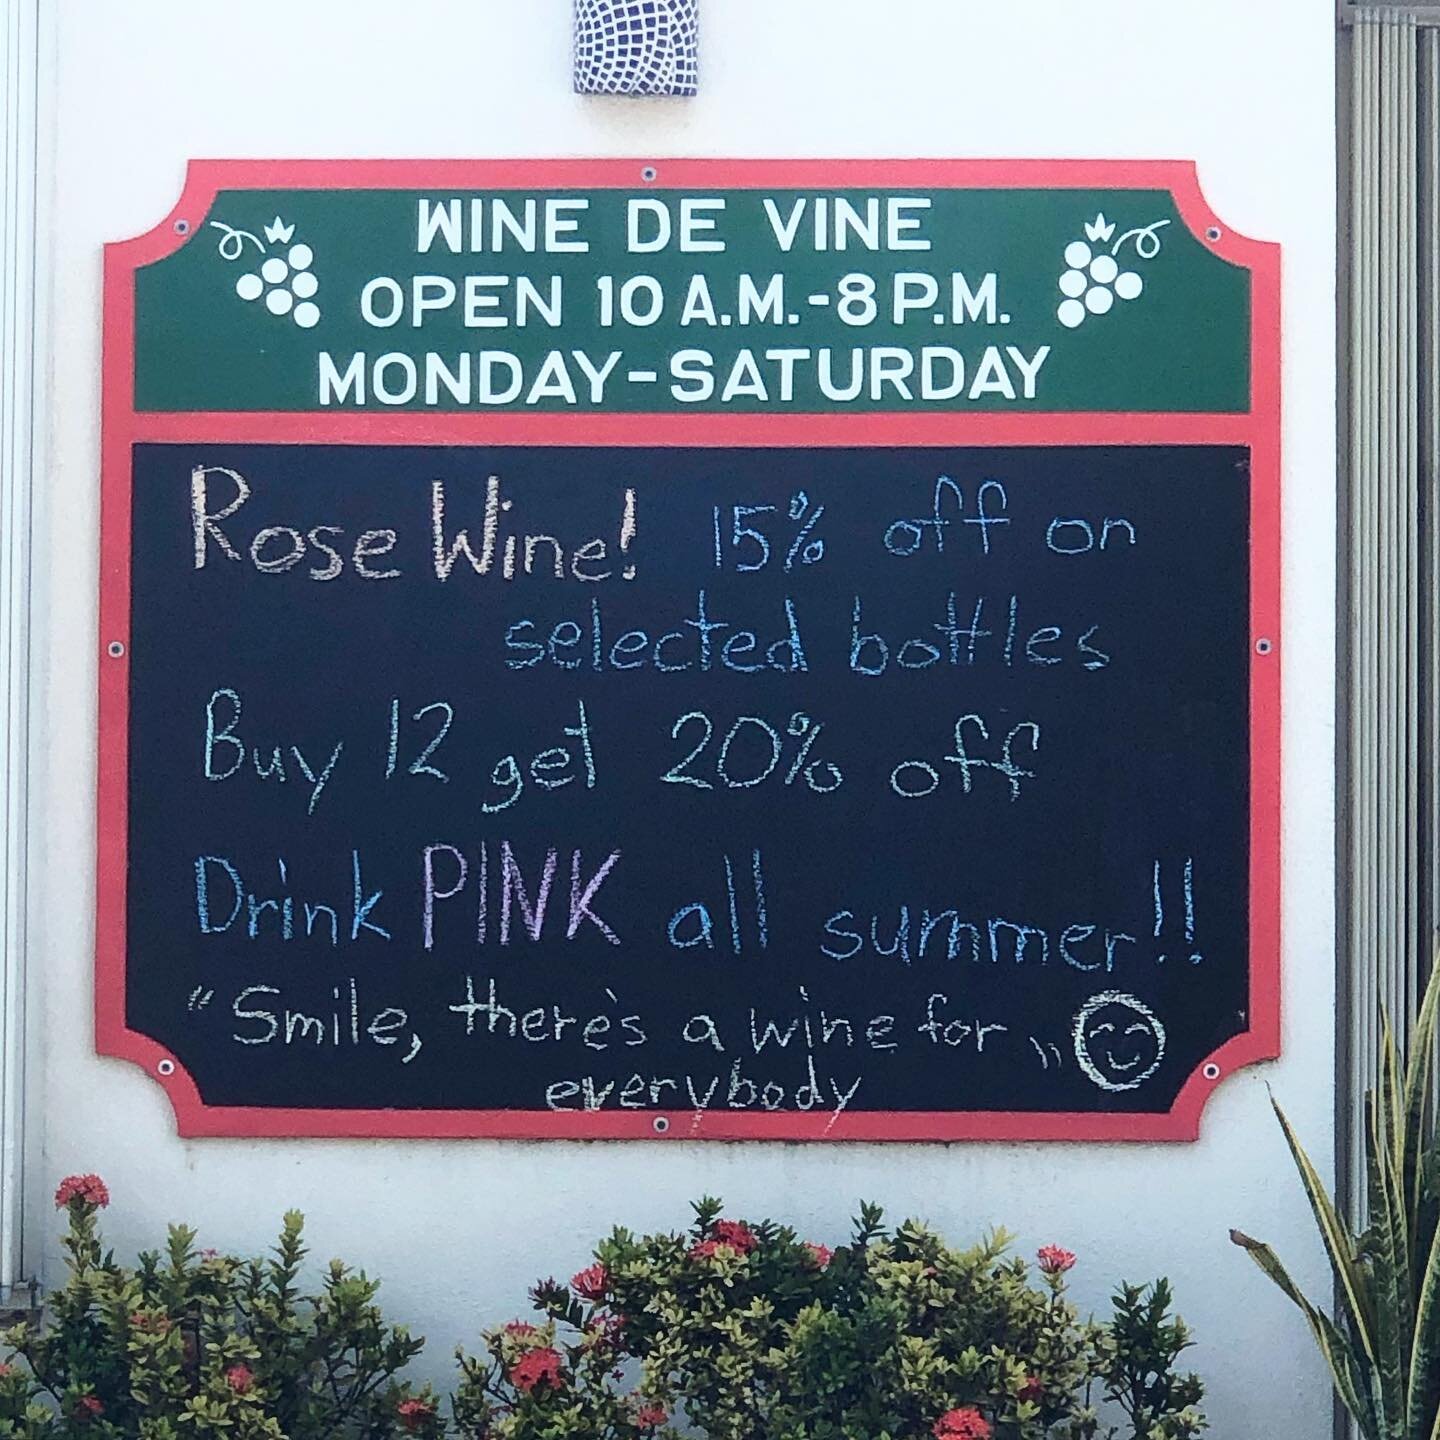 WINE DE VINE
OPEN 10 A.M.-8 P.M.
MONDAY-SATURDAY
Rose Wine! 15% off on
selected bottles
Buy 12 get 20% off
Drink PINK all summer!!
"Smile, there's a wine for
everybody"